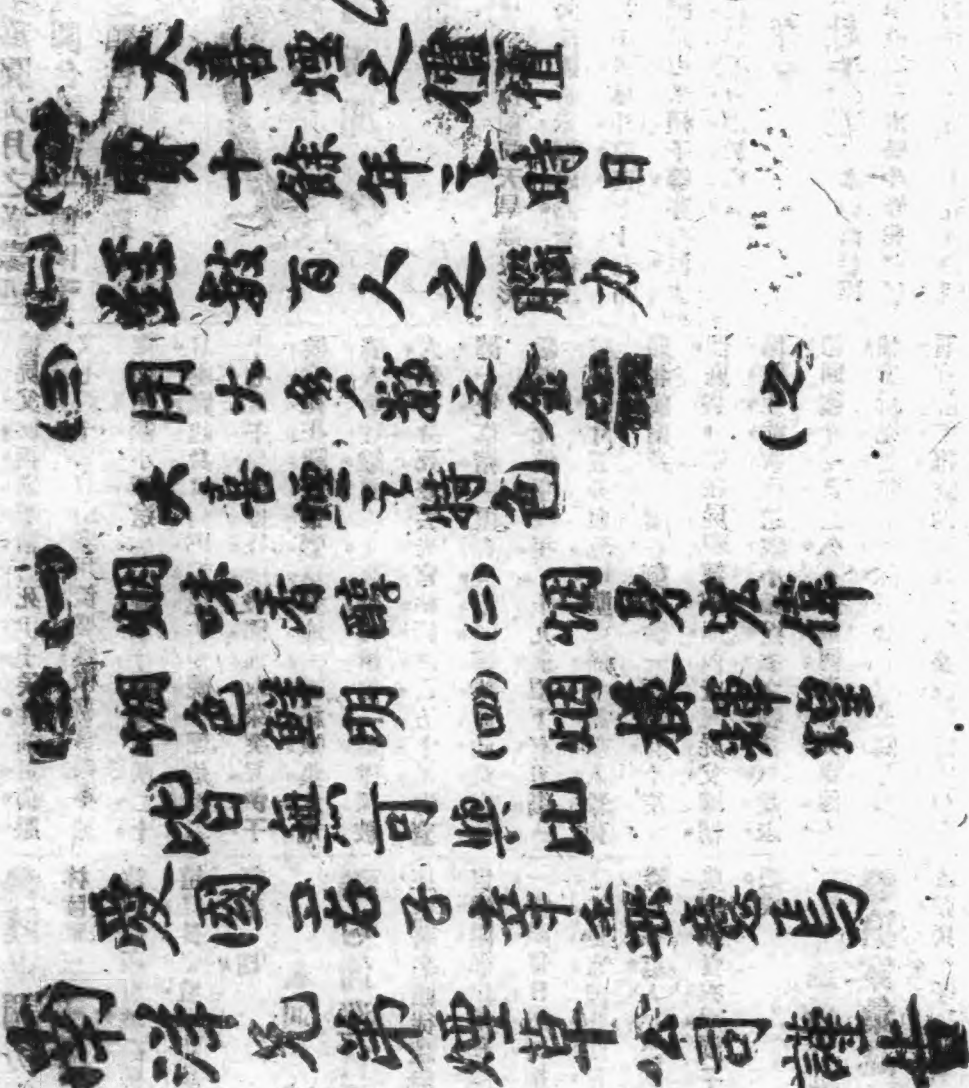 大喜煙之價值
(一)費十餘年之時日
(二)經數百人之腦力
(三)用大多數之金錢
(乙)
大喜煙之特色
(一)烟味香醇 (二)烟身宏偉
(三)烟色鮮明 (四)烟樣輝煌
皆無可與比
愛國 君子幸 焉
南洋兄弟煙草公司謹告